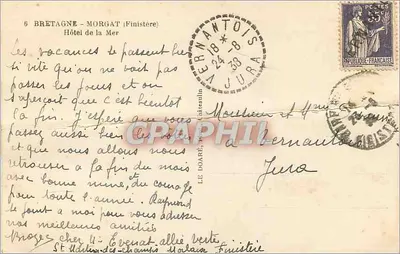 6 BRETAGNE - MORGAT (Finistère)
Hôtel de la Mer
Les vacances se passent bien
si vite qu'on ne voit pas
passer les jours et on
s'aperçoit que c'est bientôt
la fin. J'espère que vous
passez aussi bien
et que nous allons nous
retrouver à la fin du mois
avec bonne mine, du courage
pour toute l'année. Raymond
se joint à moi pour vous adresser
nos meilleures amitiés
chez
St Martin-des-champs Morlaix Finistère
VERNANTOIS
18 *
24-8
39
JURA
65c
POSTES
REPUBLIQUE FRANÇAISE
FINISTERE
LE DOARÉ
Monsieur et
à Vernantois
Jura
CPAPHIL